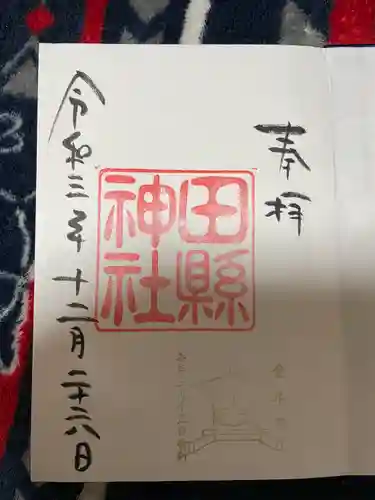 奉拝
田縣
神社
令和三年十二月二十六日